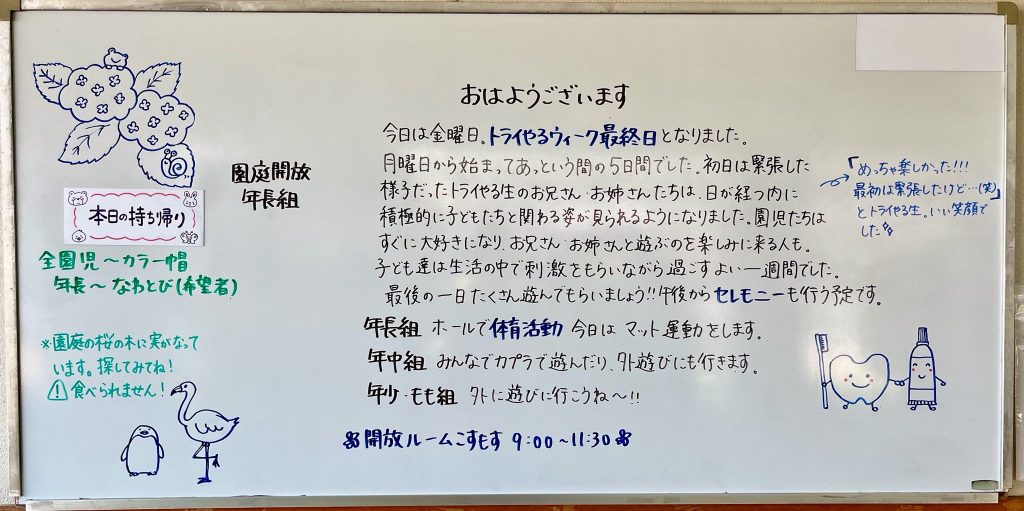 おはようございます
今日は金曜日。トライやるウィーク最終日となりました。
月曜日から始まってあっという間の5日間でした。初日は緊張した
様子だったトライやる生のお兄さん・お姉さんたちは、日が経つ内に
積極的に子どもたちと関わる姿が見られるようになりました。園児たちは
すぐに大好きになり、お兄さん・お姉さんと遊ぶのを楽しみに来る人も。
子ども達は生活の中で刺激をもらいながら過ごすよい一週間でした。
最後の一日たくさん遊んでもらいましょう!!午後からセレモニーも行う予定です。
年長組 ホールで体育活動 今日は マット運動をします。
年中組 みんなでカプラで遊んだり、外遊びにも行きます。
年少・もも組 外に遊びに行こうね〜!!
開放ルームこすもす 9:00〜11:30
「めっちゃ楽しかった!!!
最初は緊張したけど…(笑)」
とトライやる生。いい笑顔で
した
園庭開放
年長組
本日の持ち帰り
全園児〜カラー帽
年長〜なわとび(希望者)
※園庭の桜の木に実がなって
います。探してみてね!
⚠食べられません!